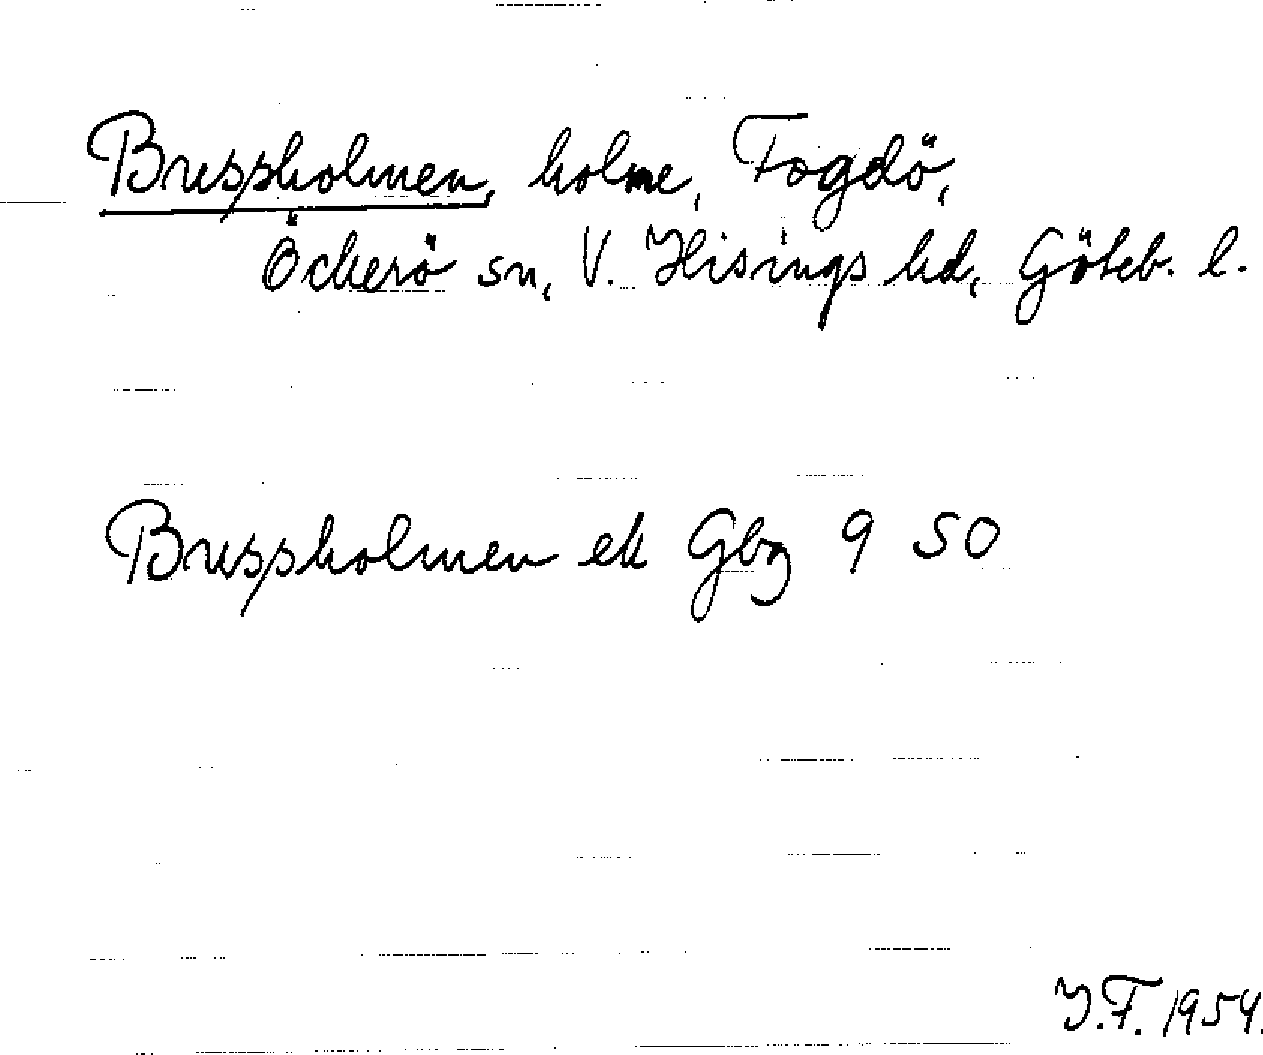 Bruspholmen, holme, Fogdö,
Öckerö sn, V. Hisings hd, Göteb. l.
Bruspholmen ek Gbg 9 50
J.F. 1954.